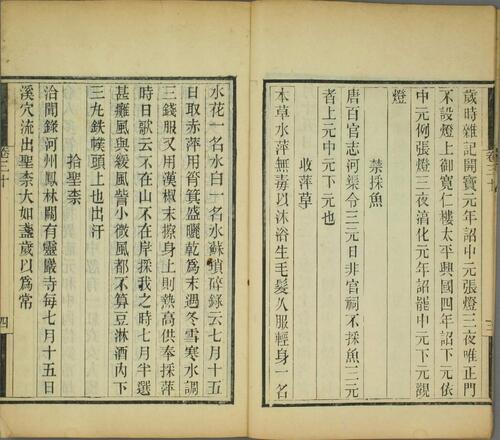 歲時雜記開寶元年詔中元張燈三夜唯正門
不設燈上御寬仁樓太平興國四年詔下元依
中元例張燈三夜淳化元年詔罷中元下元觀
燈
禁採魚
唐百官志河渠令三元日非官祠不採魚三元
者上元中元下元也
收萍草
本草水萍無毒以沐浴生毛髮久服輕身一名
水花一名水白一名水蘇瑣碎錄云七月十五
日取赤萍用筲箕盛曬乾為末遇冬雪寒水調
三錢服又用漢椒末擦身上則熱高供奉採萍
時日歌云不在山不在岸採我之時七月半選
甚癱風與緩風些小微風都不算豆淋酒內下
三丸鉄幞頭上也出汗
拾聖柰
洽聞錄河州鳳林關有靈巖寺每七月十五日
溪穴流出聖柰大如盞歲以為常
卷三十
四